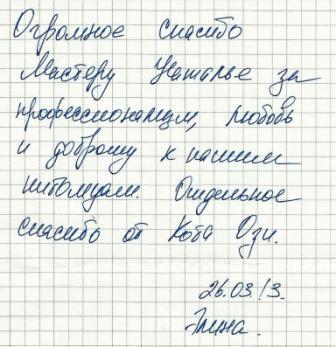 Огромное спасибо
Мастеру Наталье за
профессионализм, любовь
и доброту к нашим
питомцам. Отдельное
спасибо от Кота Ози.
26.03.13.
Элина.